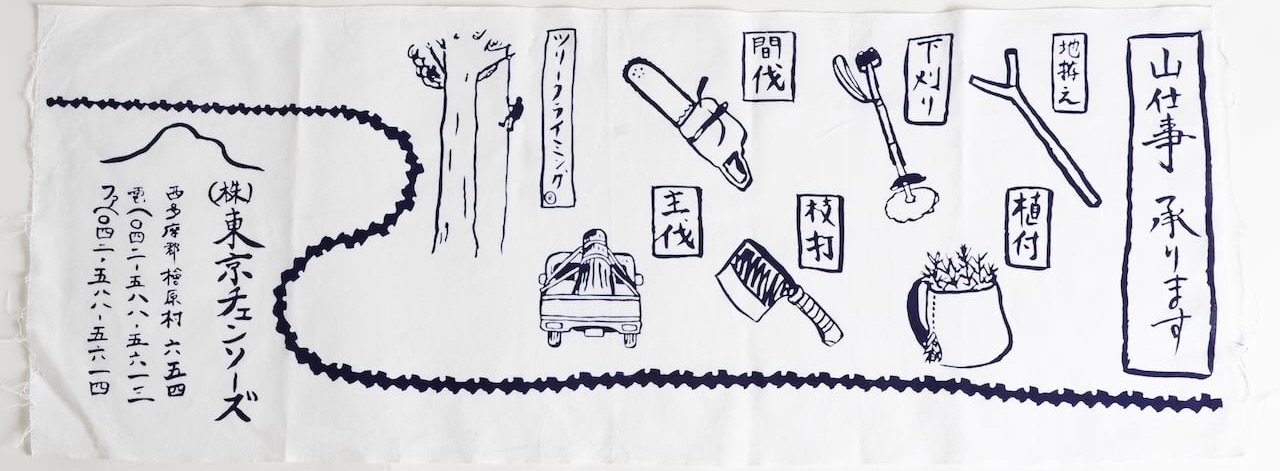 山仕事 承ります
地拵え
植付
下刈り
枝打
間伐
主伐
ツリークライミング
(株)東京チェンソーズ
西多摩郡檜原村六五四
電へ〇四二-五八八-五六一三
ファへ〇四二-五八八-五六一四